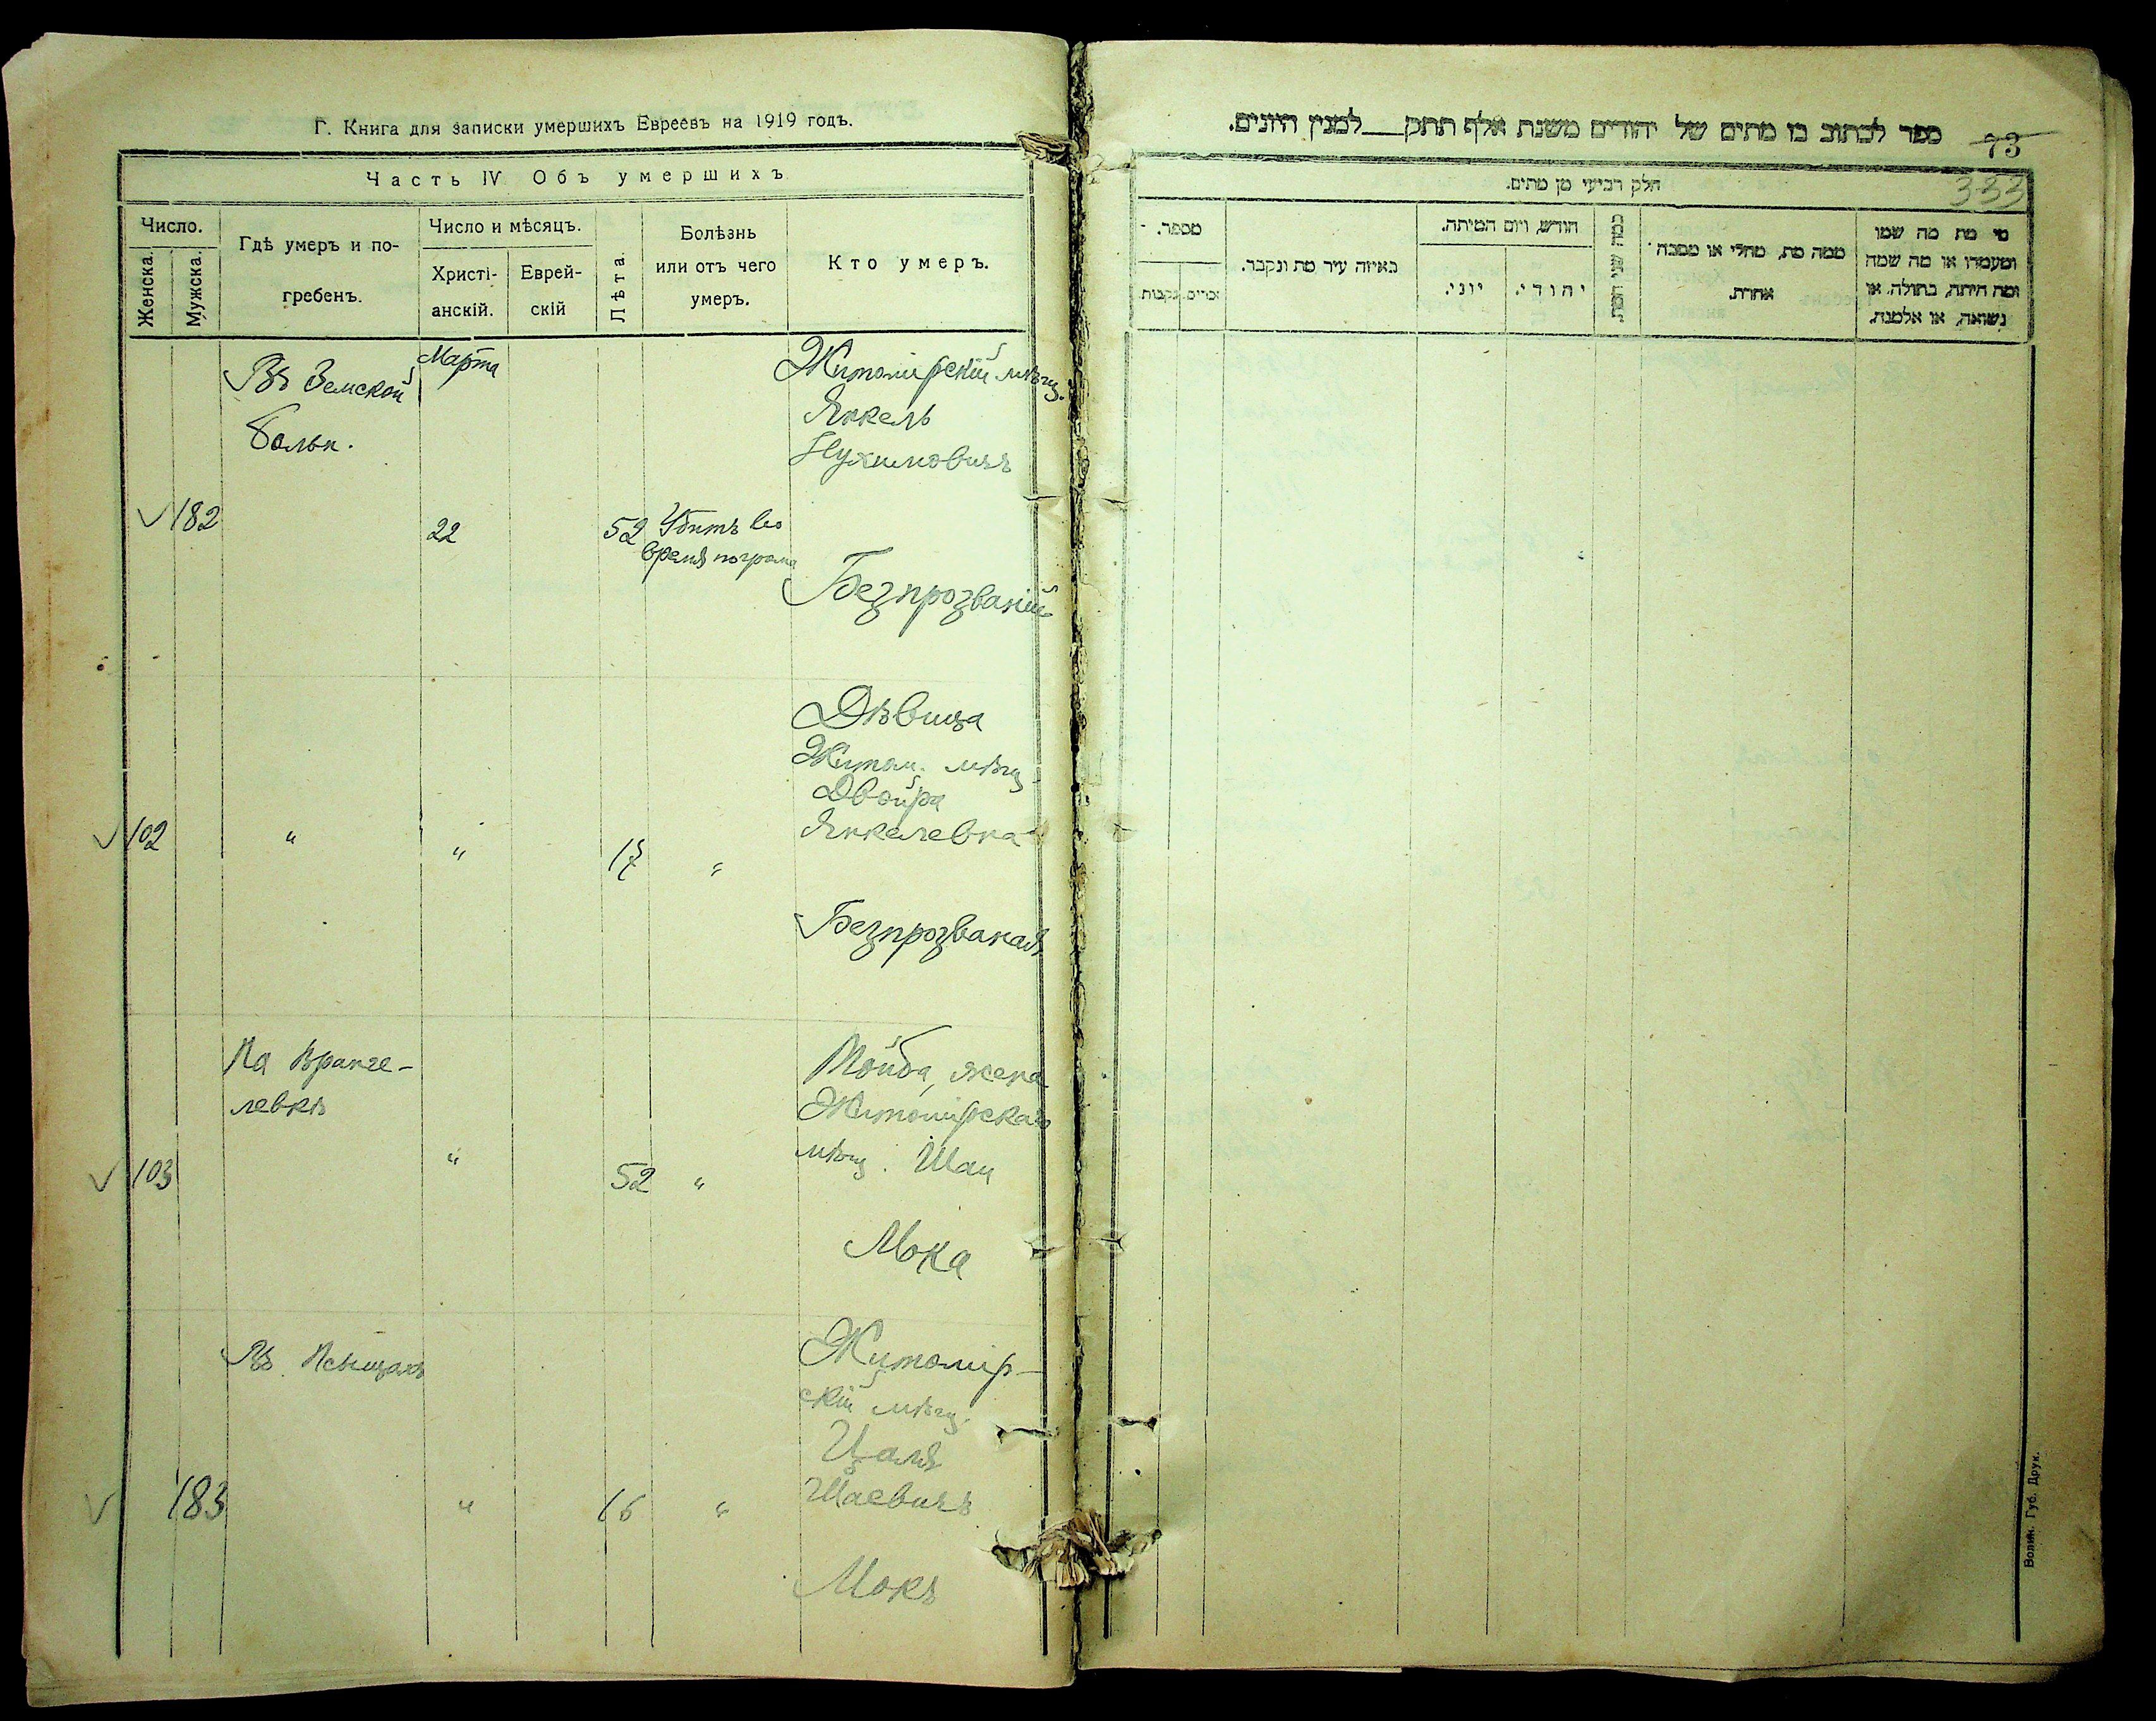 Г. Книга для записки умершихъ Евреевъ на 1919 годъ.
Часть IV Объ умершихъ
Число.
Женска.
Мужска.
Гдѣ умеръ и по-
гребенъ.
Число и мѣсяцъ.
Христі-
анскій.
Еврей-
скій
Лѣта.
Болѣзнь
или отъ чего
умеръ.
Кто умеръ.
Въ Земской
больн.
Марта
182
22
52
Убитъ во
время погрома
Житомірскій мѣщ.
Янкель
Нухимовичъ
Безпрозваній
102
"
"
17
"
Дѣвица
Житом. мѣщ.
Двойра
Янкелевна
Безпрозваная
На Вранге-
левкѣ
103
"
52
"
Тойба, жена
Житомірскаго
мѣщ. Шаи
Мока
Въ
183
"
16
"
Житомір-
скій мѣщ.
Цаля
Шаевичъ
Мокъ
ספר לכתוב בו מתים של יהודים משנת אלף תתק למנין היונים.
73
333
חלק רביעי מן מתים.
מספר.
זכרים.
נקבות
באיזה עיר מת ונקבר.
חודש, ויום המיתה.
יוני.
יהודי.
כמה שני המת.
ממה מת, מחלי או מסבה
אחרת.
מי מת מה שמו
ומעמדו או מה שמה
ומה היתה, בתולה, או
נשואה, או אלמנה.
Волин. Губ. Друк.